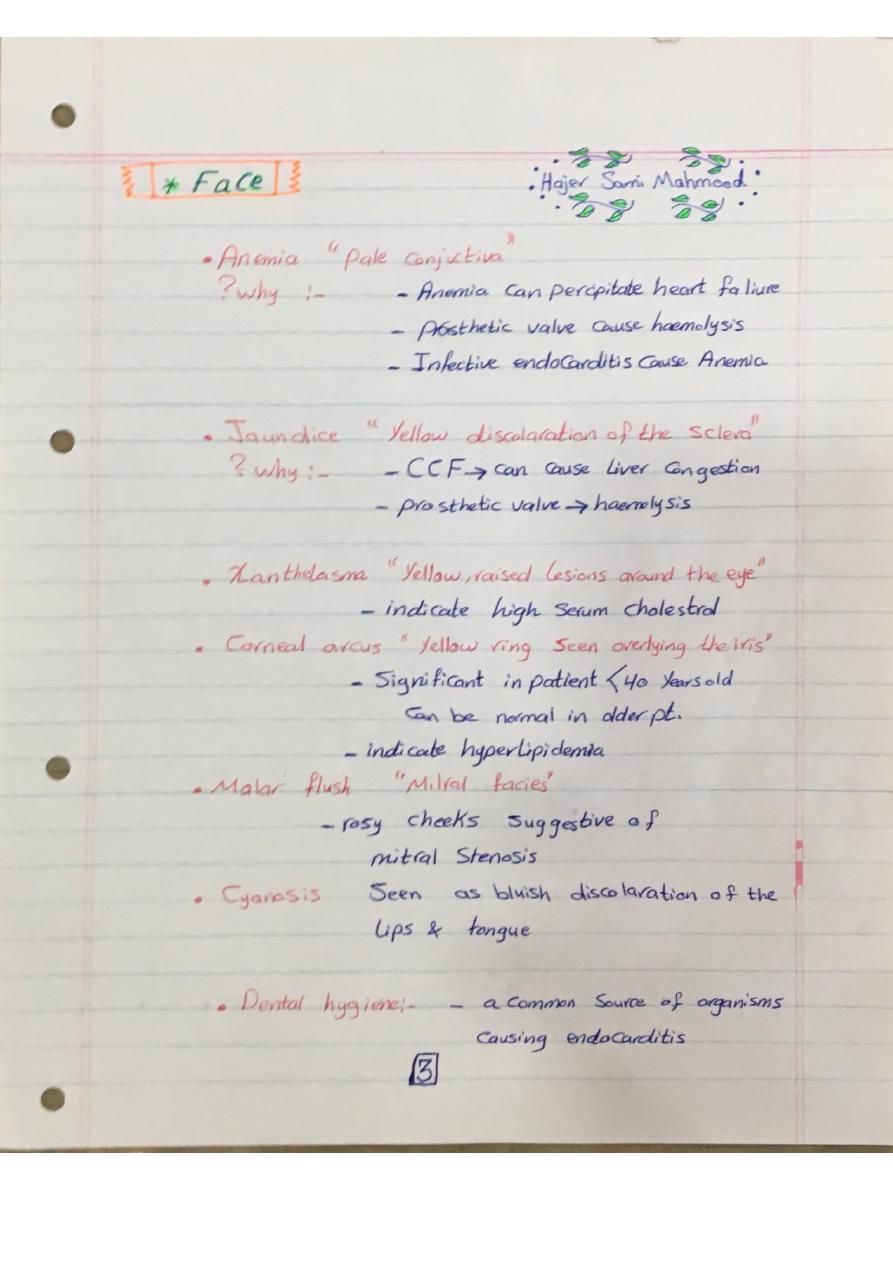 * Face
Hajer Sami Mahmood
• Anemia "pale conjuctiva"
? why :- - Anemia can percipitate heart faliure
- prosthetic valve cause haemolysis
- Infective endocarditis cause Anemia
• Jaundice "Yellow discolaration of the sclera"
? why :- - CCF → can cause liver congestion
- prosthetic valve → haemolysis
• Xanthelasma "Yellow, raised lesions around the eye"
- indicate high serum cholestrol
• Corneal arcus "Yellow ring seen overlying the iris"
- Significant in patient < 40 years old
can be normal in older pt.
- indicate hyperlipidemia
• Malar flush "Mitral facies"
- rosy cheeks suggestive of
mitral stenosis
• Cyanosis Seen as bluish discolaration of the
lips & tongue
• Dental hygiene:- - a common source of organisms
causing endocarditis
3